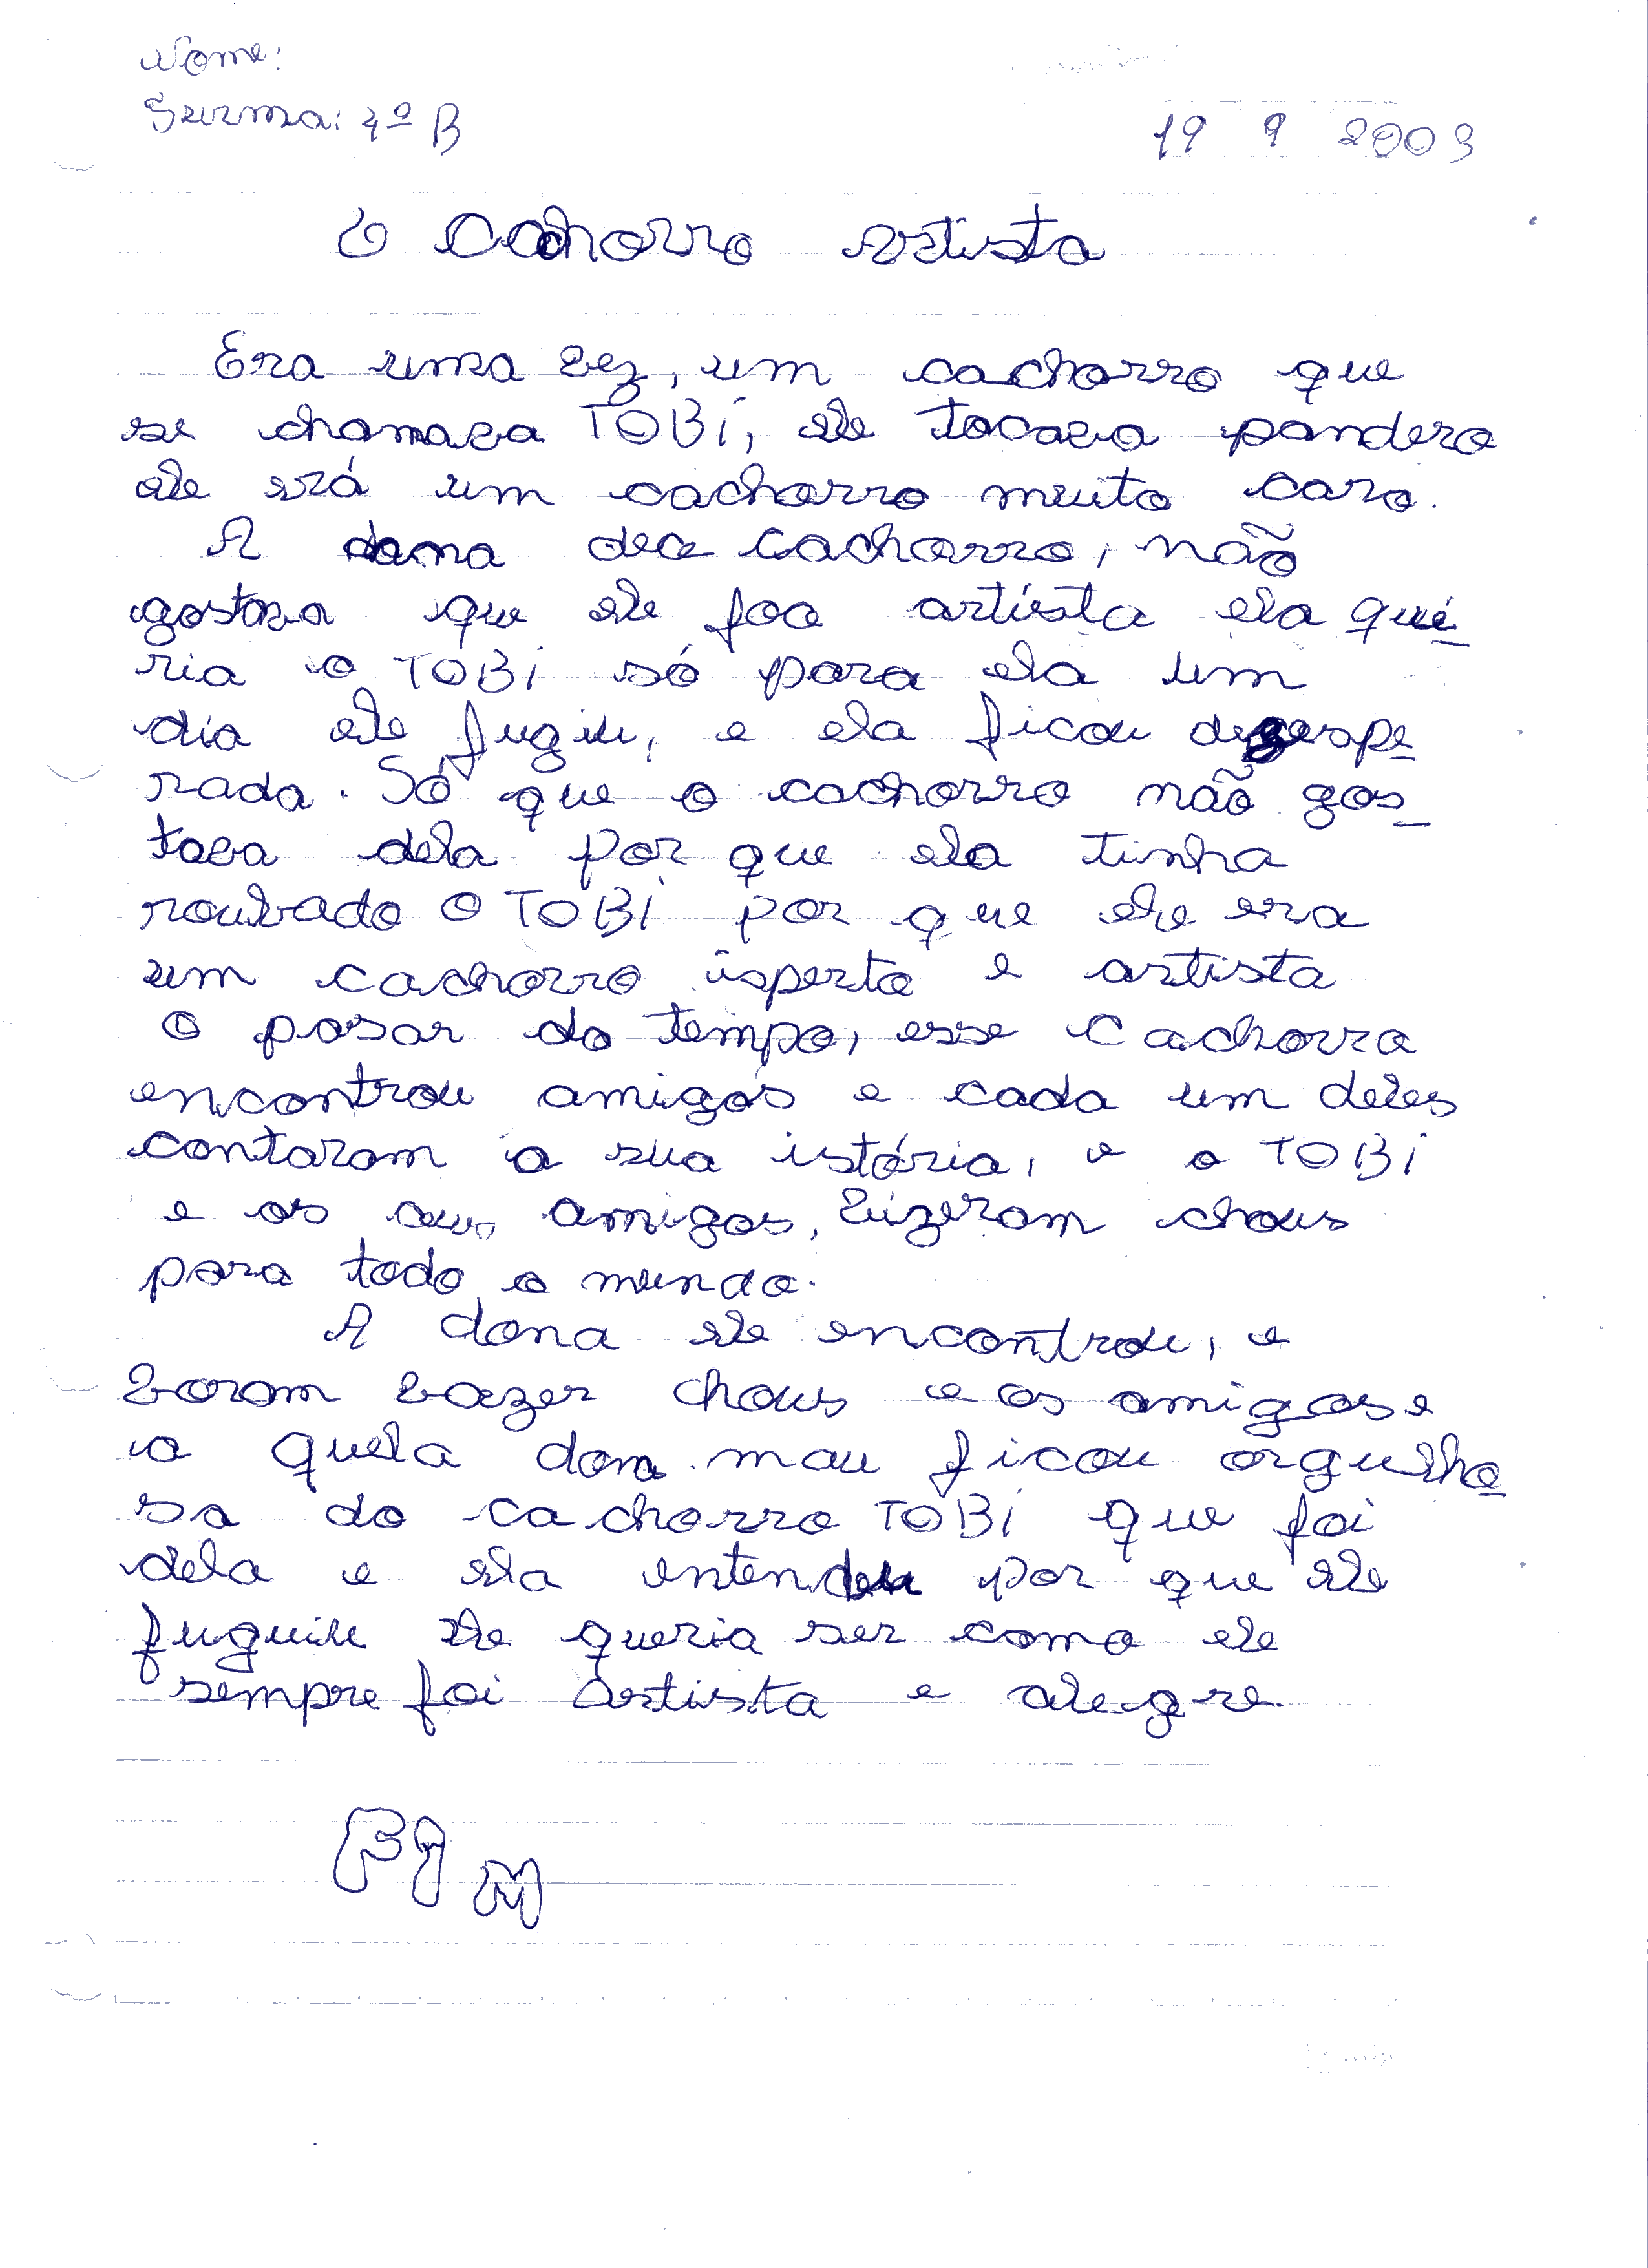 Nome:
Turma: 4º B
19 9 2003
O Cachorro Artista
Era uma vez, um cachorro que
se chamava TOBi, ele tocava pandero
ele erá um cachorro muito caro.
A dona dece cachorro, não
gostava que ele foce artista ela qui
ria o TOBi só para ela um
dia ele fugiu, e ela ficou desespe
rada. Só que o cachorro não gos_
tava dela por que ela tinha
roubado o TOBi por que ele era
um cachorro isperto e artista
O pasar do tempo, esse cachorro
encontrou amigos e cada um deles
contaram a sua istória, e o TOBi
e os amigos, vizeram chous
para todo o mundo.
A dona ele encontrou, e
voram vazer chous e os amigos e
a quela dona mau ficou orgulho
sa do cachorro TOBi que foi
dela e ela entendeu por que ele
fuguiu ele queria ser como ele
sempre foi artista e alegre.
FIM